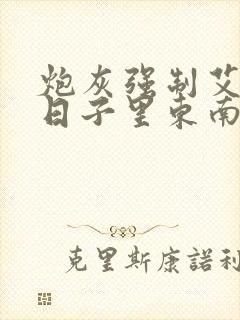 炮灰强制艾
日子里东南
克里斯康諾利